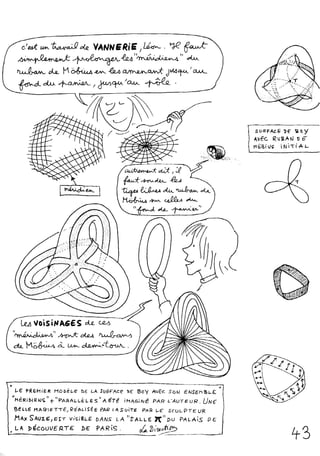 c'est un travail de VANNERIE, Léon. Il faut
simplement prolonger les "méridiens" du
ruban de Möbius en les amenant jusqu'au
fond du panier, jusqu'au pôle.
SURFACE DE BOY
AVEC RUBAN DE
MÖBIUS INITIAL
autrement dit, il
faut souder les
tiges libres du ruban de
Möbius sur celles du
"fond de panier"
méridien
T
Les VOISINAGES de ces
"méridiens" sont des rubans
de Möbius à un demi-tour.
LE PREMIER MODÈLE DE LA SURFACE DE BOY AVEC SON ENSEMBLE
"MÉRIDIENS" + "PARALLÈLES" A ÉTÉ IMAGINÉ PAR L'AUTEUR. UNE
BELLE MAQUETTE, RÉALISÉE PAR LA SUITE PAR LE SCULPTEUR
MAX SAUZE, EST VISIBLE DANS LA "SALLE π" DU PALAIS DE
LA DÉCOUVERTE DE PARIS. La Direction
43